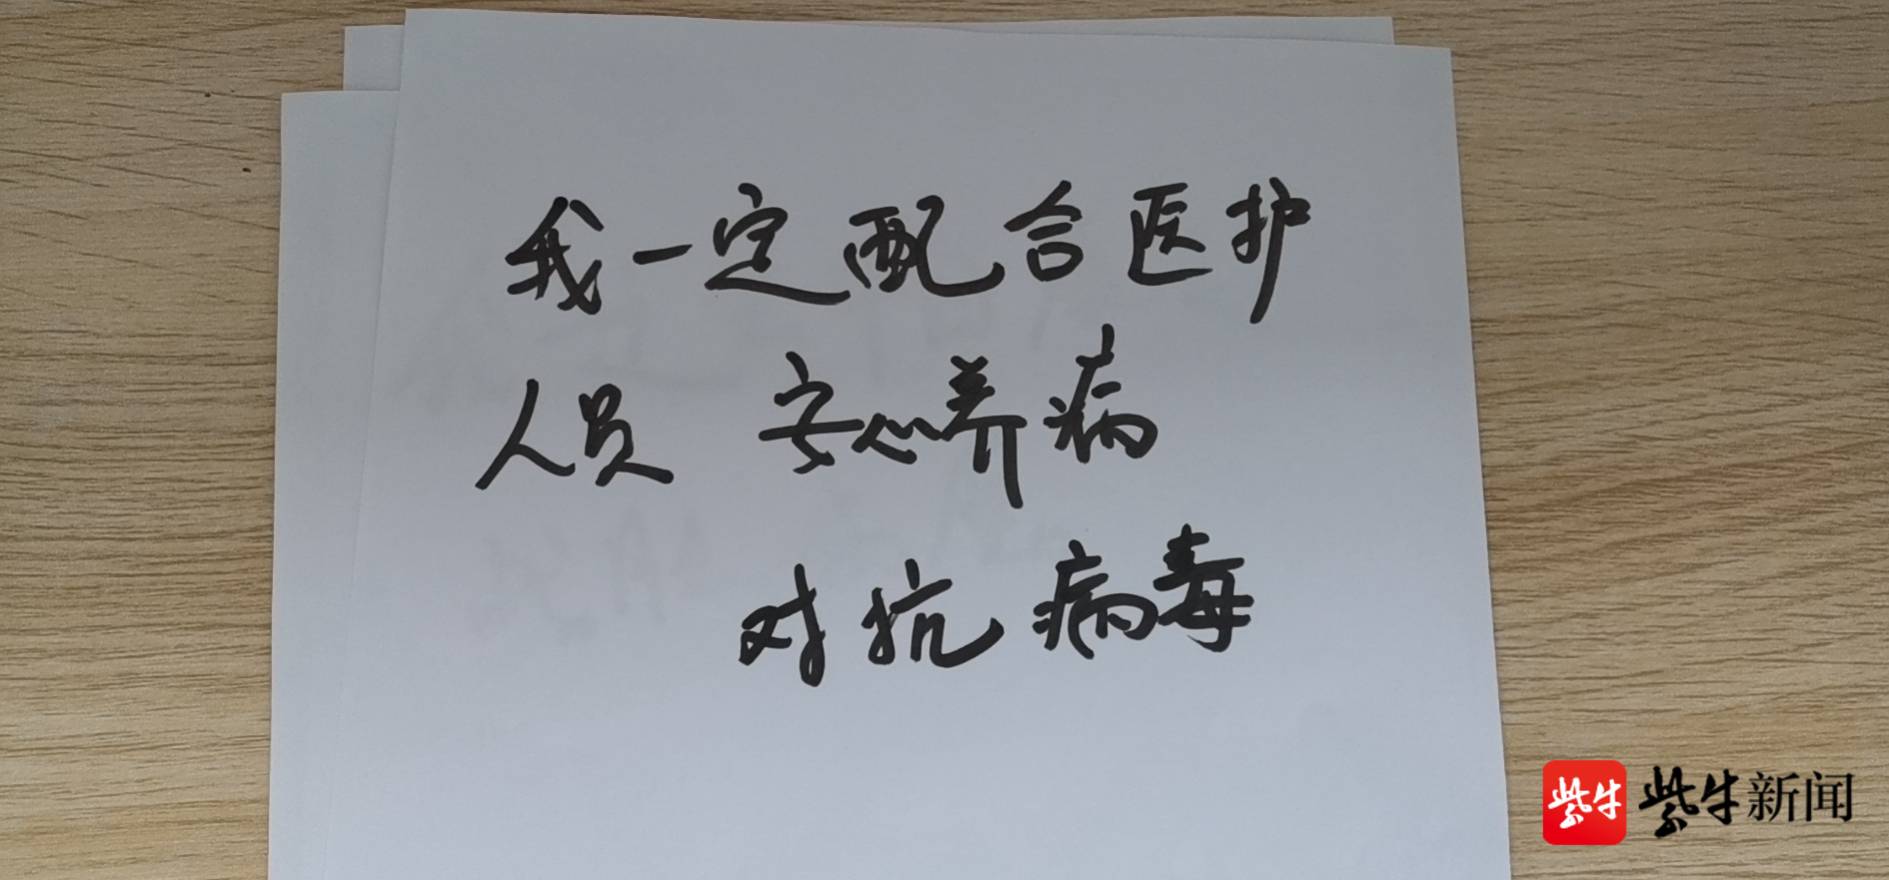 我一定配合医护
人员 安心养病
对抗病毒
紫牛 紫牛新闻